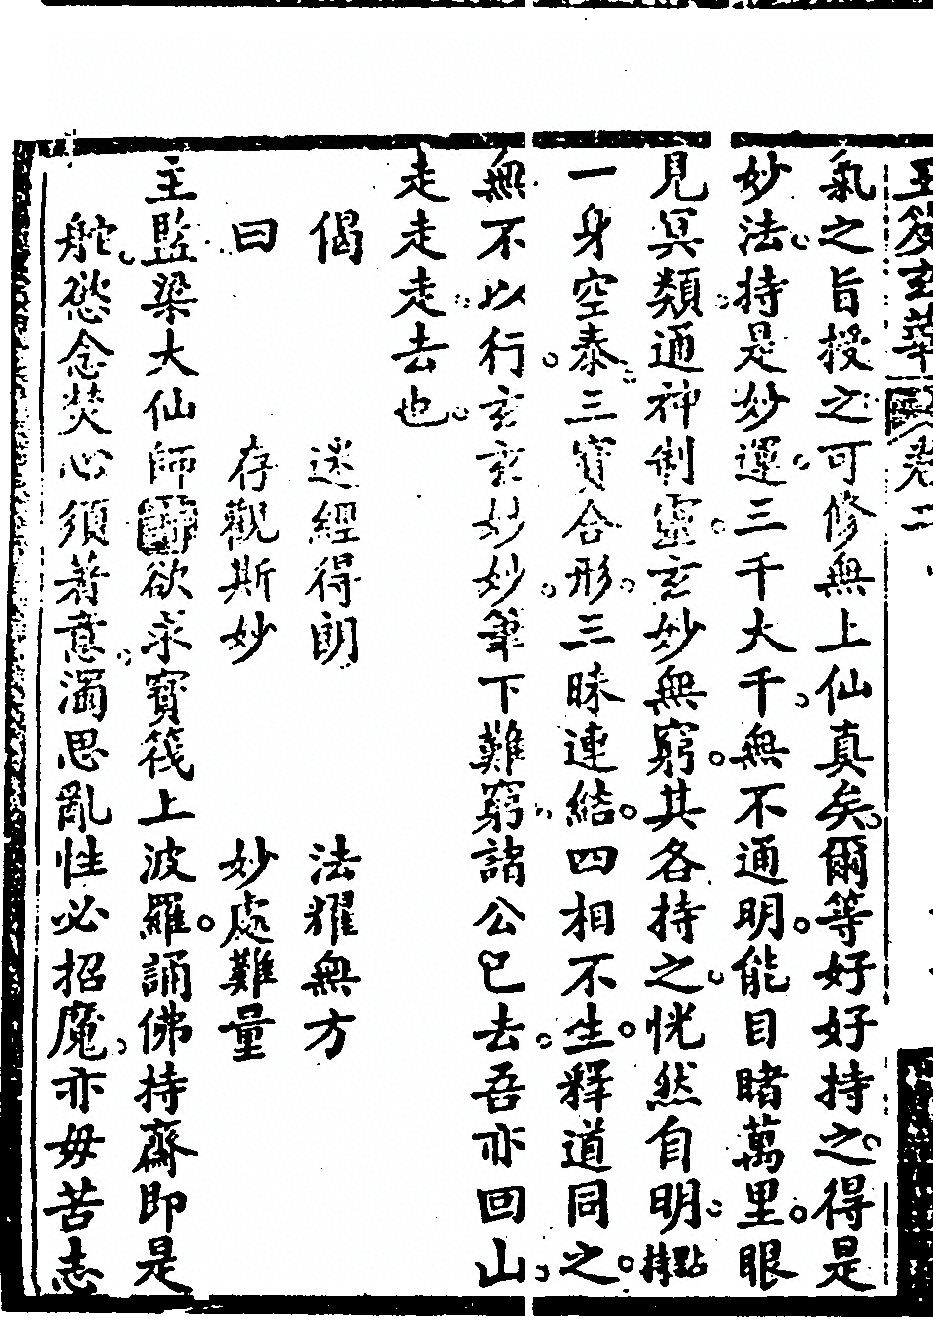 卷二
氣之旨授之可修無上仙真矣爾等好好持之得是
妙法持是妙運三千大千無不通明能目睹萬里眼
見冥類通神制靈玄妙無窮其各持之恍然自明點持
一身空泰三寶合形三昧連結四相不生釋道同之
無不以行玄玄妙妙筆下難窮諸公已去吾亦回山
走走走去也
偈　迷經得朗　法耀無方
曰　存觀斯妙　妙處難量
主監梁大仙師　欲求寶筏上波羅誦佛持齋即是
舵慾念焚心須著意濁思亂性必招魔亦毋苦志